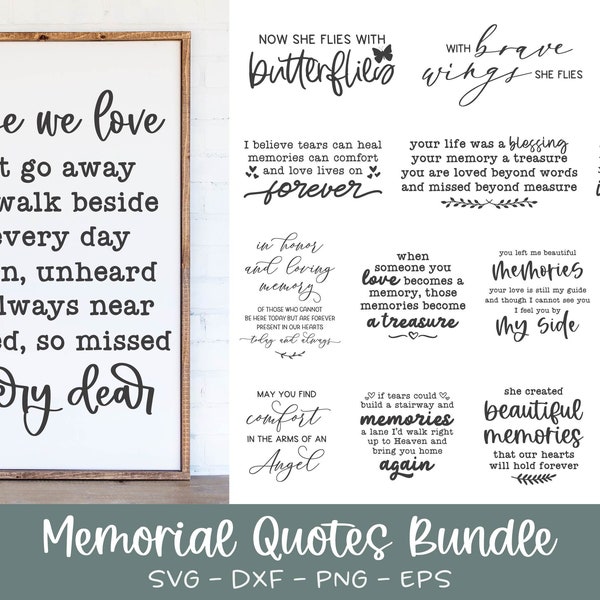 e we love
t go away
walk beside
every day
n, unheard
lways near
ed, so missed
ery dear
NOW SHE FLIES WITH
butterflies
WITH brave
wings SHE FLIES
I believe tears can heal
memories can comfort
and love lives on
forever
your life was a blessing
your memory a treasure
you are loved beyond words
and missed beyond measure
in honor
and loving
memory
OF THOSE WHO CANNOT
BE HERE TODAY BUT ARE FOREVER
PRESENT IN OUR HEARTS
today and always
when
someone you
love becomes a
memory, those
memories become
a treasure
you left me beautiful
memories
your love is still my guide
and though I cannot see you
I feel you by
my side
MAY YOU FIND
comfort
IN THE ARMS OF AN
Angel
if tears could
build a stairway and
memories
a lane I'd walk right
up to Heaven and
bring you home
again
she created
beautiful
memories
that our hearts
will hold forever
Memorial Quotes Bundle
SVG - DXF - PNG - EPS